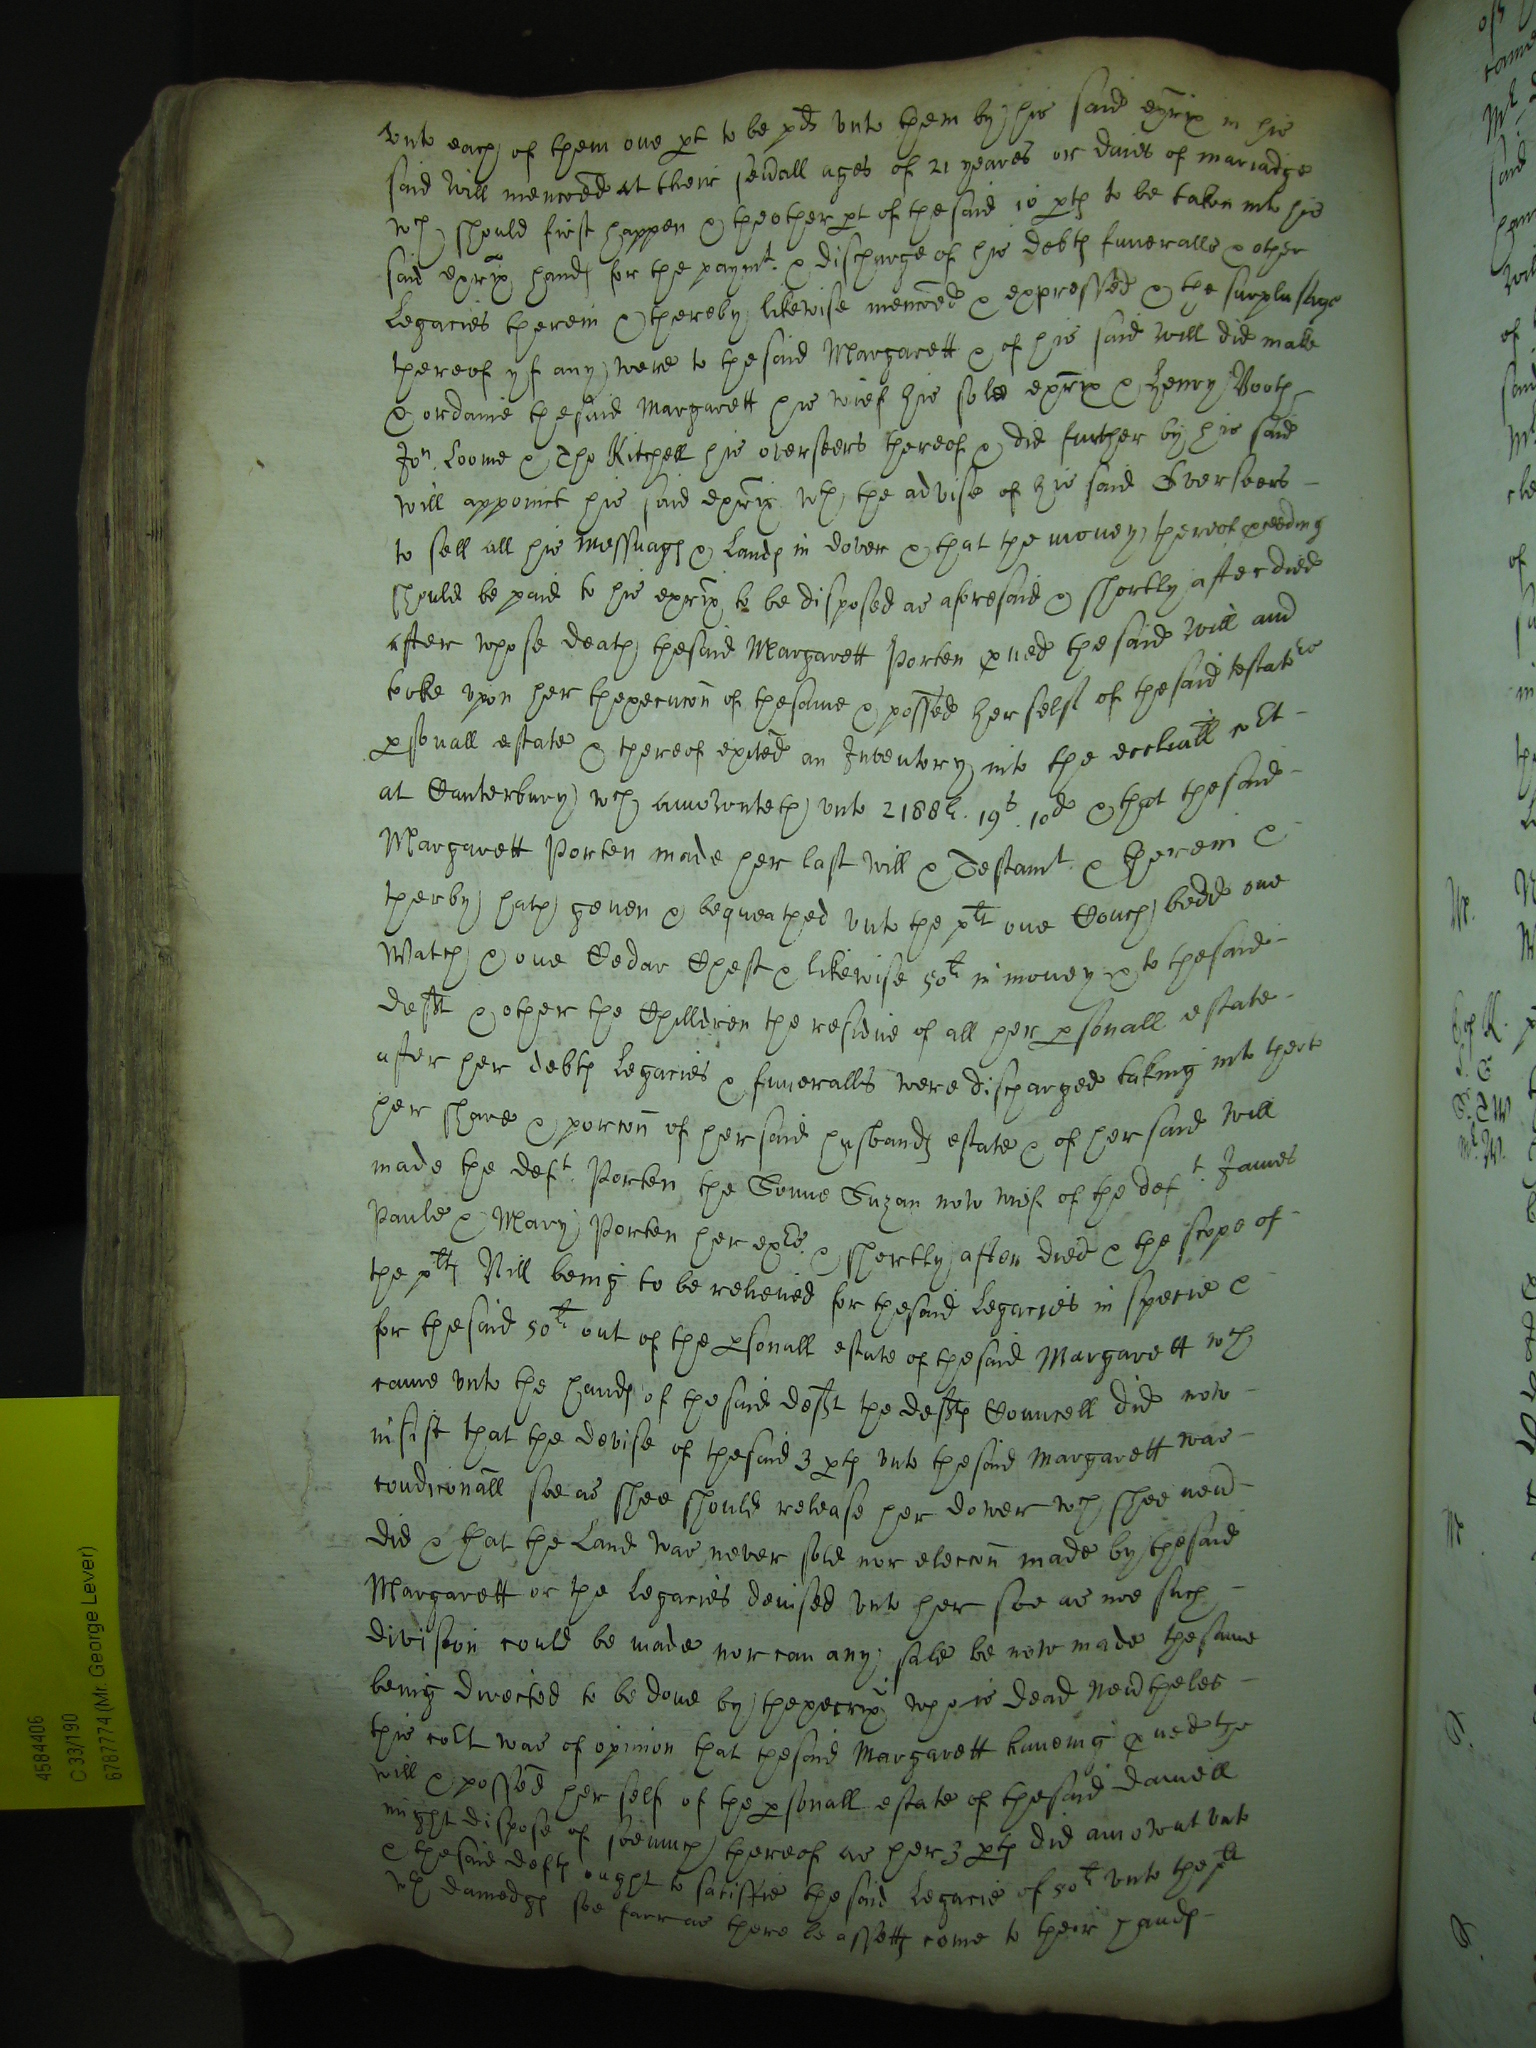 unto each of them one pt to be pd unto them by his said exrix in his
said Will menconed at their sevall ages of 21 yeares or daies of mariadge
wch should first happen & theother pt of thesaid 10 pts to be taken into his
said exrix hands for the paymt & discharge of his debts funeralls & other
Legacies therein & thereby likewise menconed & expressed & the surplusage
thereof yf any were to thesaid Margarett & of his said Will did make
& ordaine thesaid Margarett his wief his sole exrix & Henry Booth
Jon. Loome & Tho Kitchell his overseers thereof & did further by his said
will appoint his said exrix wth the advise of his said Overseers
to sell all his messuags & Lands in dover & that the money thereof pceeding
should be paid to his exrix to be disposed as aforesaid & shortly after died
after whose death thesaid Margarett Porten pved the said Will and
tooke upon her thexecucon of thesame & possed her self of thesaid testators
psonall estate & thereof exited an Inventory into the eccliall cort
at Canterbury wch amounteth unto 2188li. 19s. 10d & that thesaid
Margarett Porten made her last will & Testamt & therein &
therby hath geven & bequeathed unto the plt one Couch bedd one
Watch & one Cedar Chest & likewise 50li in money & to thesaid
deft & other the Children the residue of all her psonall estate
after her debts Legacies & funeralls were discharged taking into therto
her share & porcon of her said husbands estate & of her said Will
made the deft. Porten the Sonne Suzan now wief of the deft. James
Paule & Mary Porten her exrs. & shortly after died & the scope of
the plts Bill being to be releived for thesaid Legacies in specie &
for thesaid 50li out of the psonall estate of thesaid Margarett wch
came unto the hands of thesaid deft the defts Councell did now
insist that the devise of thesaid 3 pts unto thesaid Margarett was
condiconall soe as shee should release her dower wch shee nevr
did & that the Land was never sold nor eleccon made by thesaid
Margarett or the Legacies devised unto her soe as noe such
division could be made nor can any sale be now made thesame
being directed to be done by thexecrix who is dead nevrtheles
this cort was of opinion that thesaid Margarett haveing pved the
will & possed her self of the psonall estate of thesaid daniell
might dispose of soemuch thereof as her 3 pts did amount unto
& thesaid defts ought to satisfie thesaid Legacie of 50li unto the plt
wth damedgs soe farr as there be assetts come to their hands
4584406
C 33/190
6787774 (Mr. George Lever)